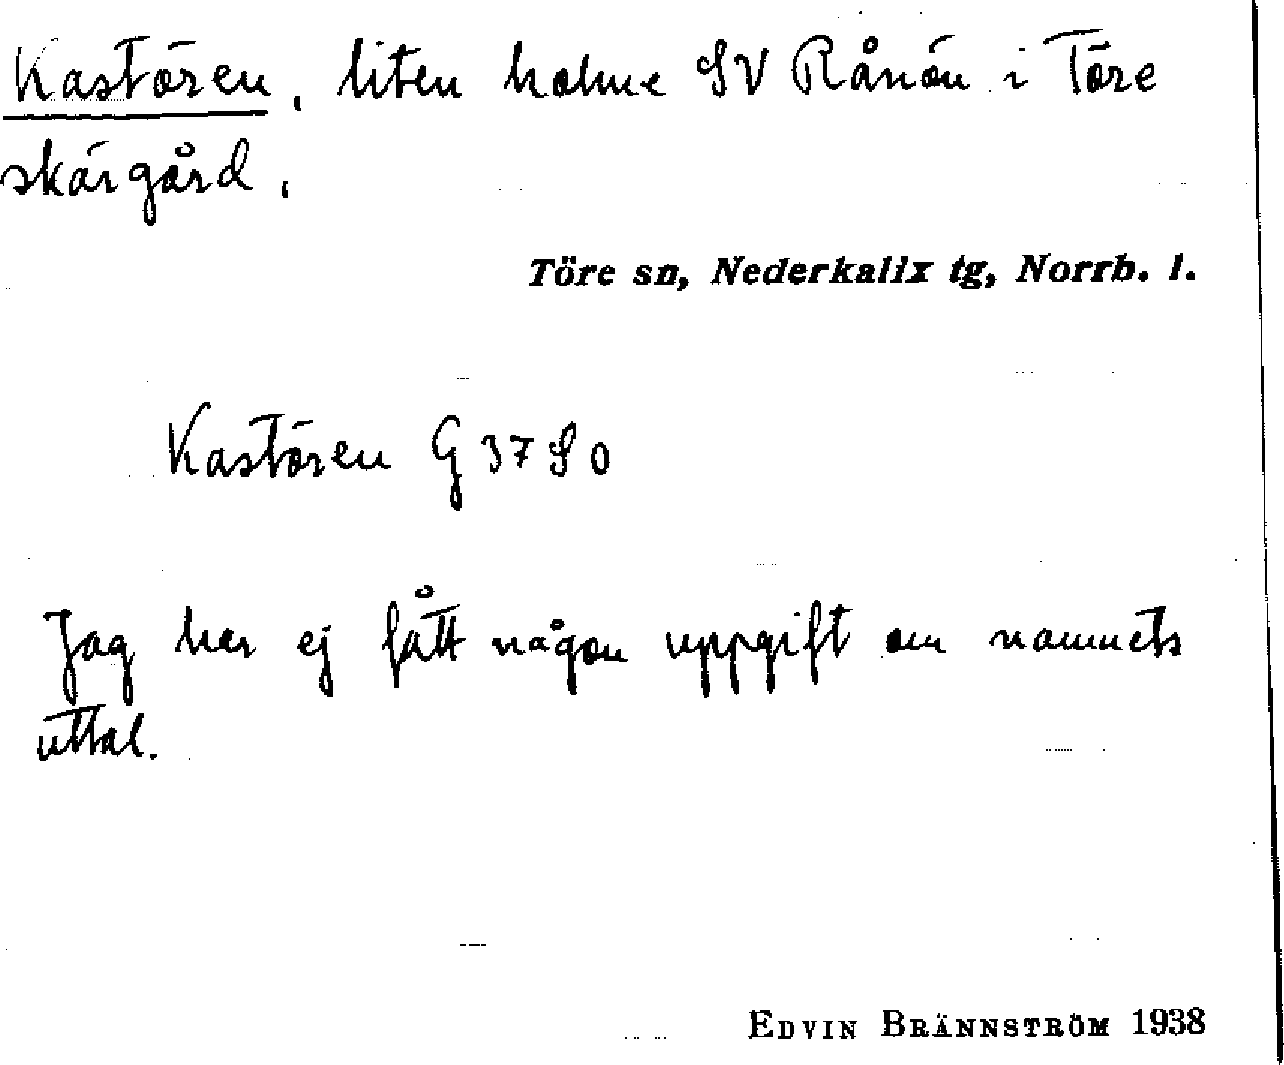 Kastören, liten holme SV Rånön i Töre
skärgård.
Töre sn, Nederkalix tg, Norrb. l.
Kastören G 37 SO
Jag har ej fått någon uppgift om namnets
uttal.
EDVIN BRÄNNSTRÖM 1938